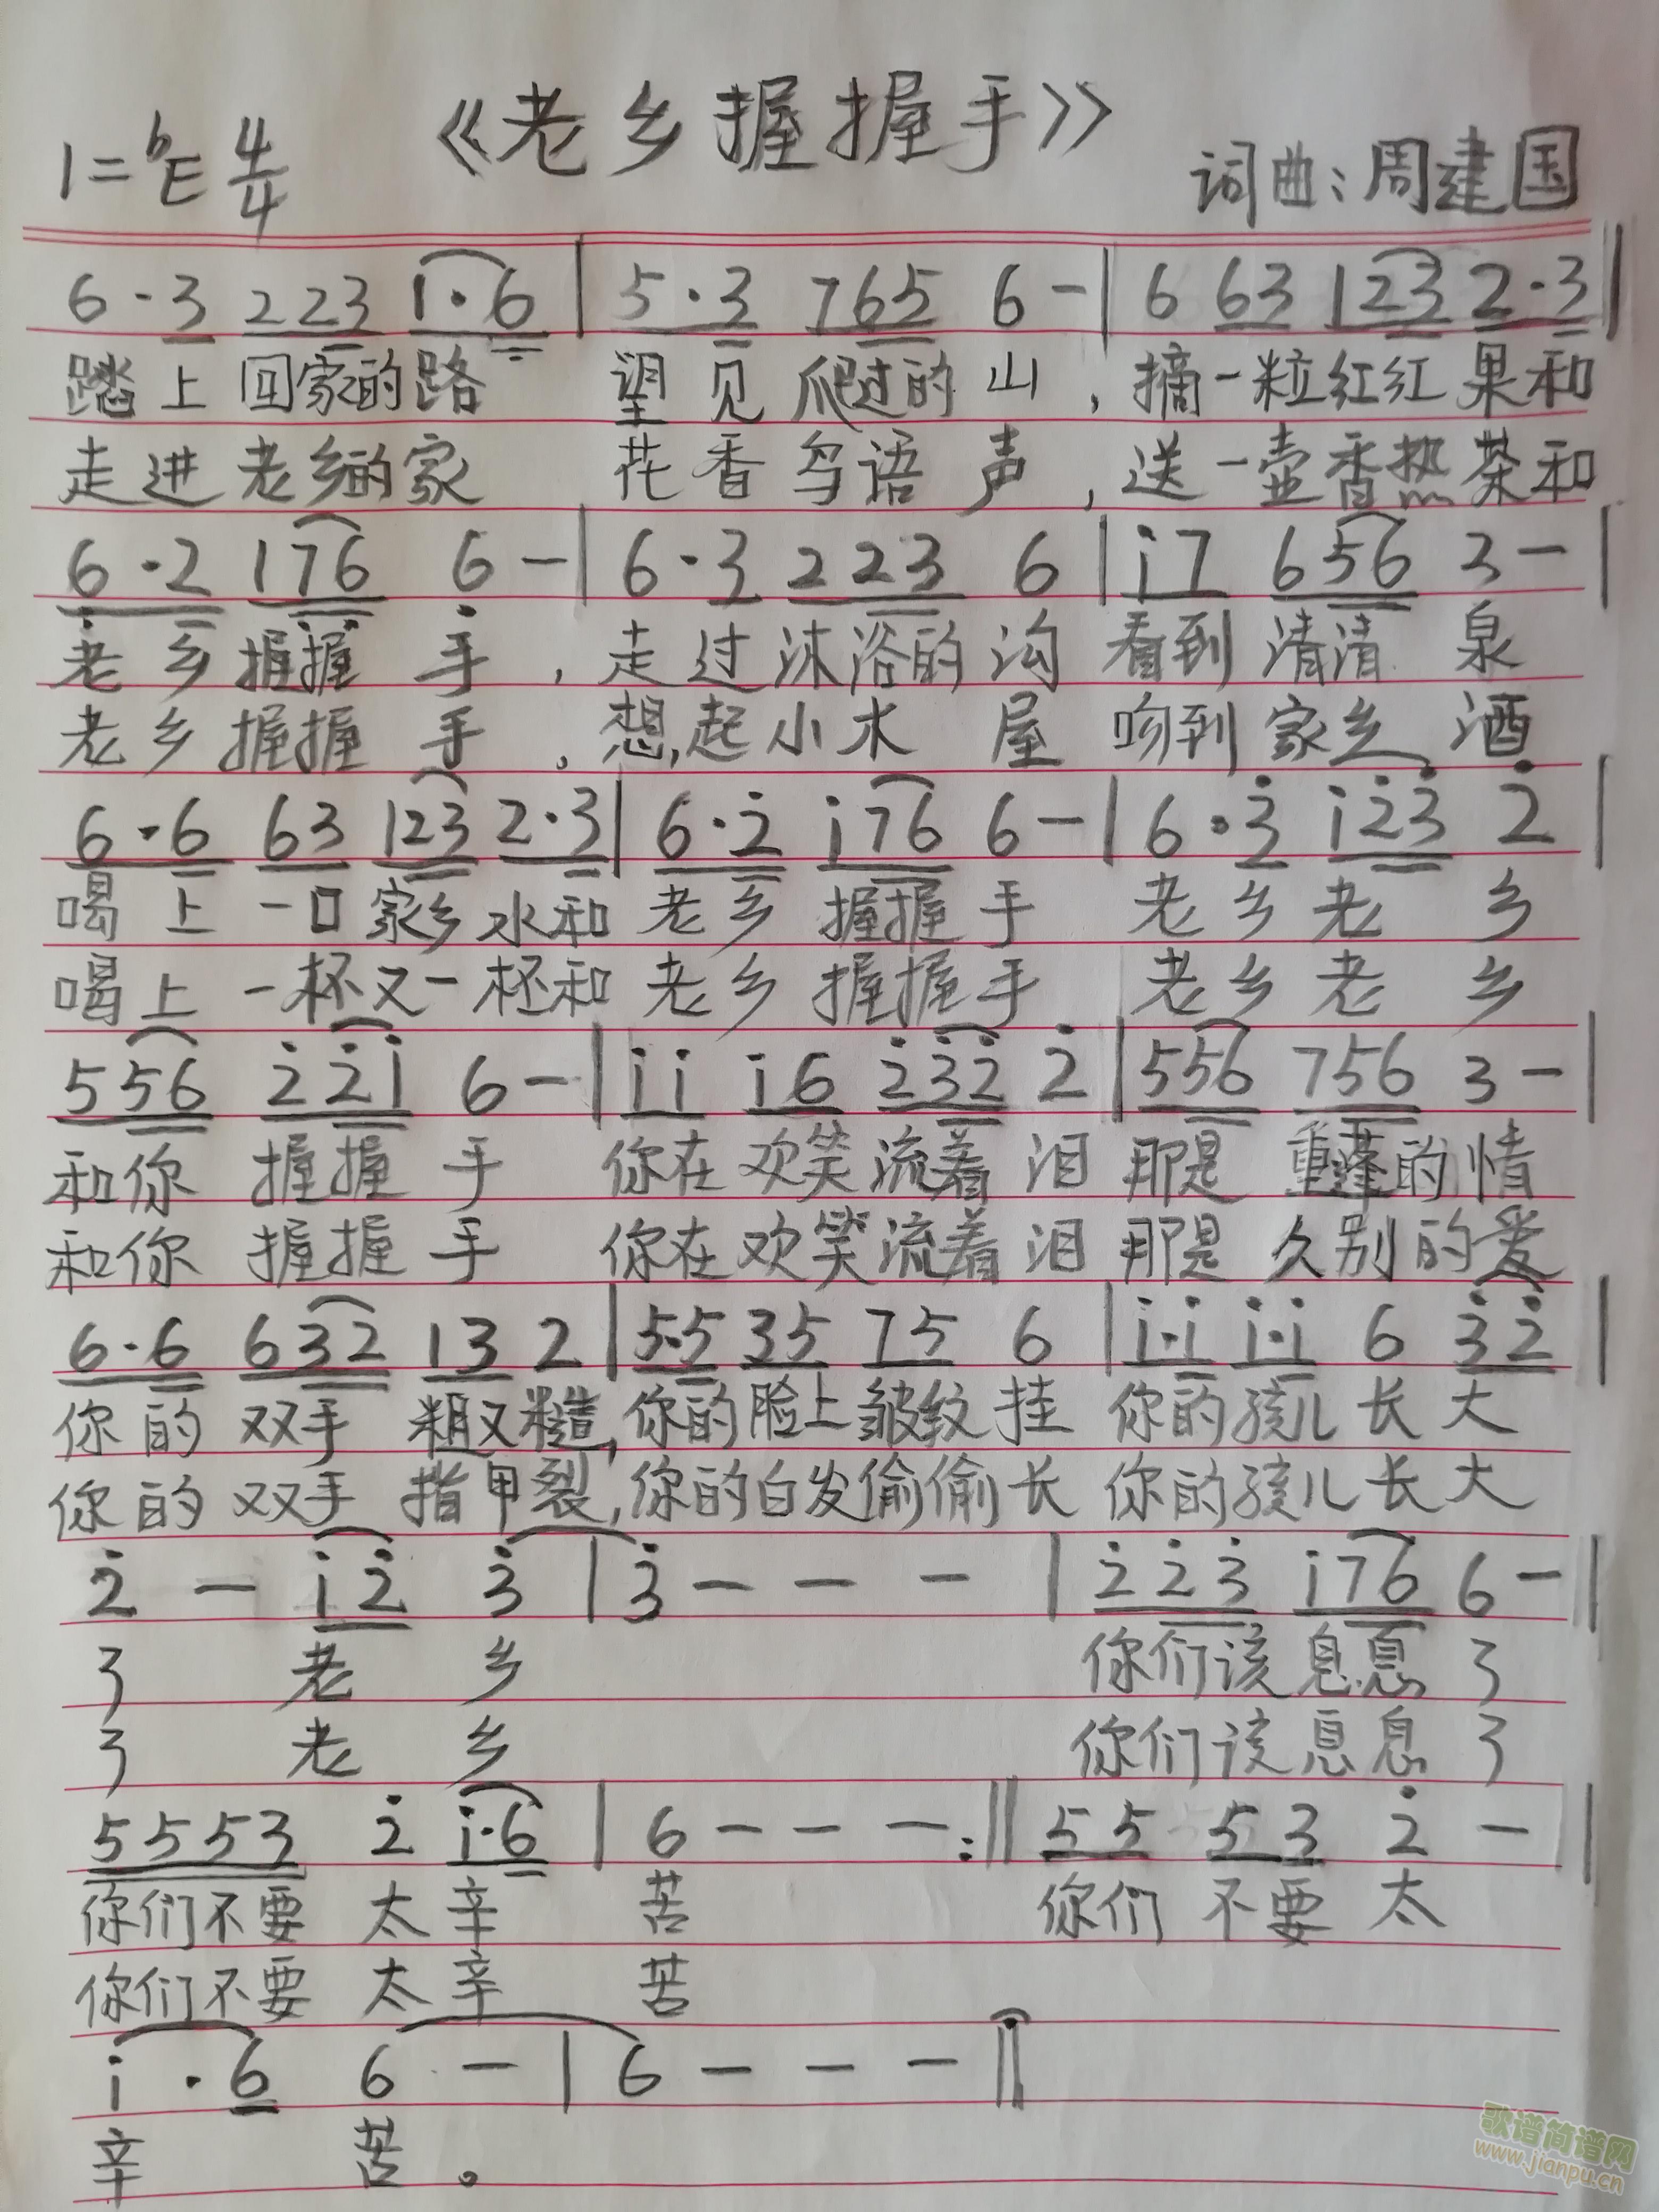 《老乡握握手》
1=ᵇE 4/4
词曲：周建国
6·3 223 i·6 | 5·3 765 6— | 6 63 123 2·3 |
踏上回家的路 望见爬过的山，摘一粒红红果和
走进老乡的家 花香鸟语声，送一壶香热茶和
6·2 176 6— | 6·3 223 6 | i7 656 3— |
老乡握握手，走过沐浴的沟 看到清清泉
老乡握握手。想起小木屋 吻到家乡酒
6·6 63 123 2·3 | 6·2̇ i76 6— | 6·3̇ i2̇3̇ 2̇ |
喝上一口家乡水和 老乡握握手 老乡老乡
喝上一杯又一杯和 老乡握握手 老乡老乡
556 2̇2̇i 6— | ii i6 2̇3̇2̇ 2̇ | 556 756 3— |
和你握握手 你在欢笑流着泪 那是重蓬的情
和你握握手 你在欢笑流着泪 那是久别的爱
6·6 632 13 2 | 5·5 35 75 6 | i·i i·i 6 3̇2̇ |
你的双手粗又糙，你的脸上皱纹挂 你的孩儿长大
你的双手指甲裂，你的白发偷偷长 你的孩儿长大
2̇ — i2̇ 3̇ | 3̇ — — — | 2̇2̇3̇ i76 6— |
了 老乡 你们该息息了
了 老乡 你们该息息了
5553 2̇ i·6 | 6 — — — :‖ 55 53 2̇ — |
你们不要太辛苦 你们不要太
你们不要太辛苦
i·6 6 — | 6 — — — ‖
辛 苦。
歌谱简谱网
www.jianpu.cn